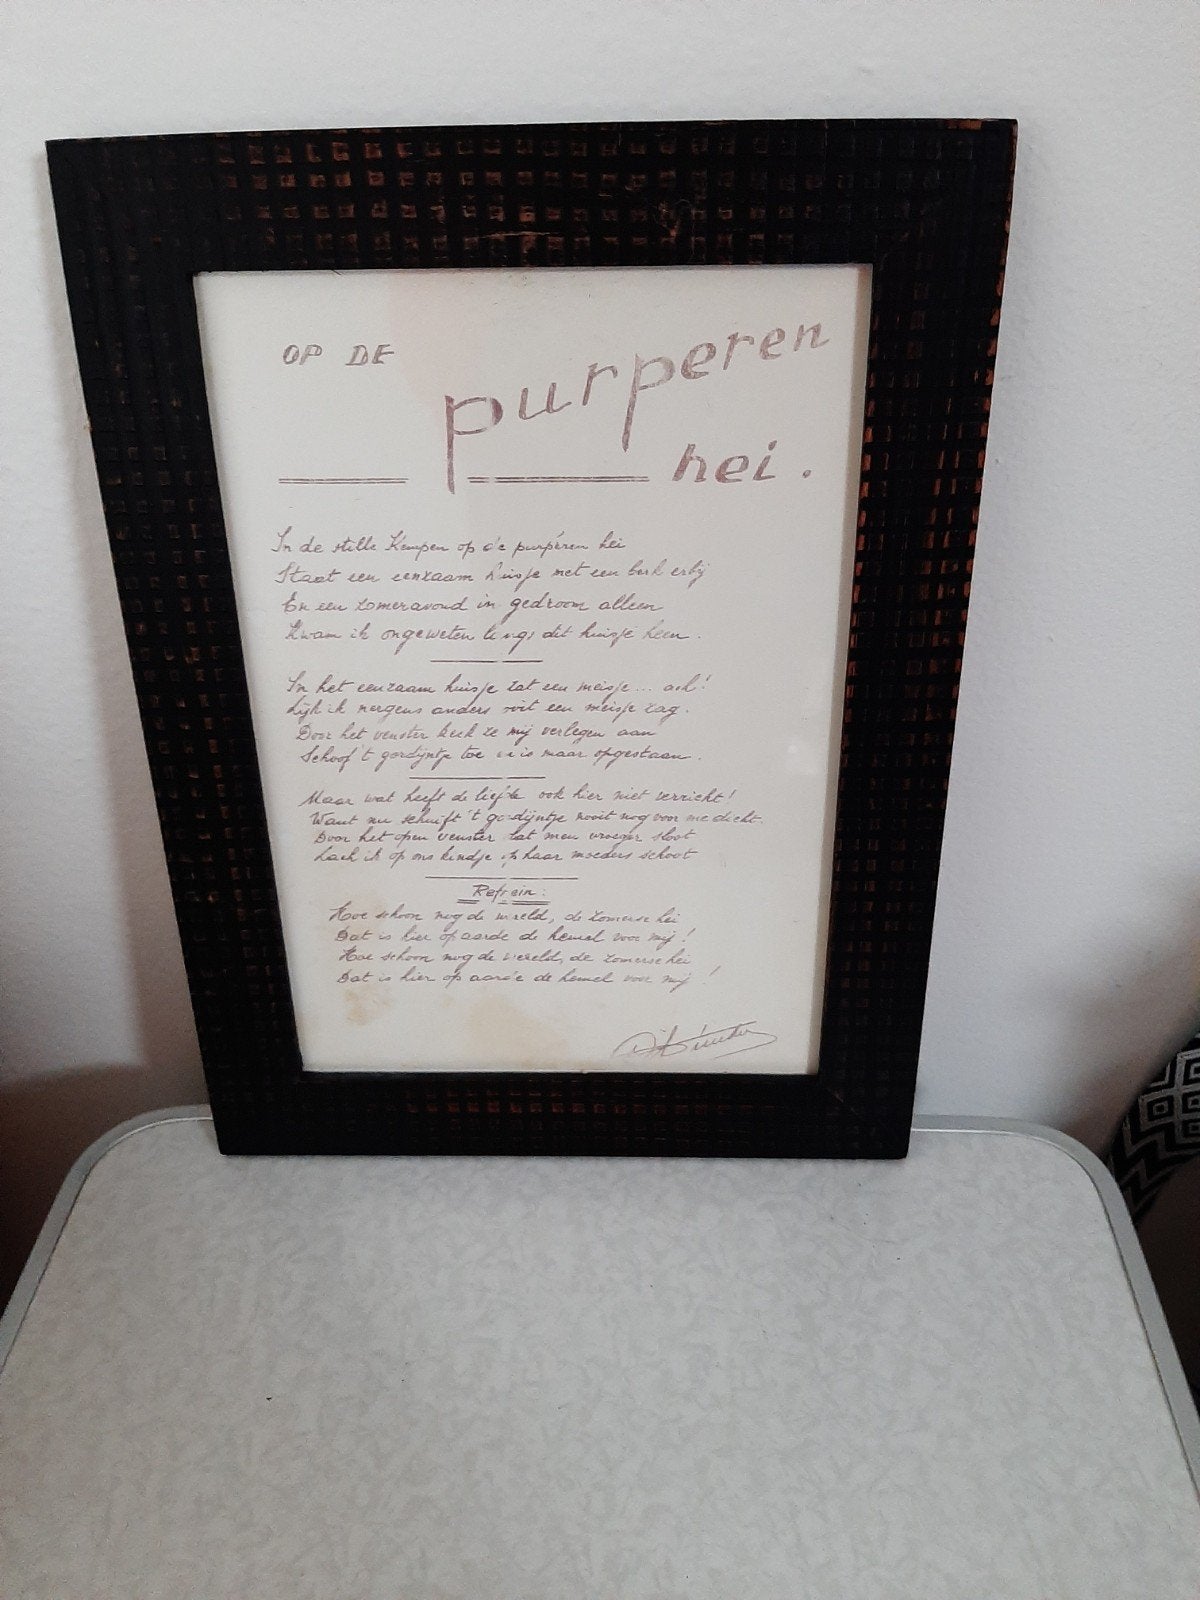 OP DE
purperen
hei.
In de stille Kempen op de purperen hei
Staat een eenzaam huisje met een berk erbij
En een zomeravond in gedroom alleen
Kwam ik ongeweten langs dit huisje heen.
In het eenzaam huisje zat een meisje... ach!
Lijk ik nergens anders ooit een meisje zag.
Door het venster keek ze mij verlegen aan
Schoof 't gordijntje toe en is maar opgestaan.
Maar wat heeft de liefde ook hier niet verricht!
Want nu schuift 't gordijntje nooit nog voor me dicht.
Door het open venster dat men vroeger sloot
Lach ik op ons kindje op haar moeders schoot
Refrein:
Hoe schoon nog de wereld, de zomerse hei
Dat is hier op aarde de hemel voor mij!
Hoe schoon nog de wereld, de zomerse hei
Dat is hier op aarde de hemel voor mij!